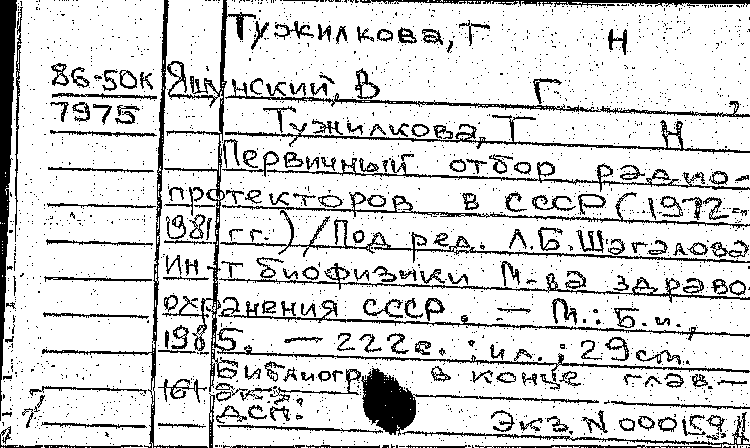 Тужилкова, Т Н
86-50к Яшунский, В Г,
7975 Тужилкова, Т Н
Первичный отбор радио-
протекторов в СССР (1972-
1981 гг.) / Под ред. Л.Б. Шагалова
Ин-т биофизики М-ва здраво-
охранения СССР. — М.: Б.и.,
1985. — 222с. : ил. ; 29см.
Библиогр. в конце глав. —
161 экз.
ДСП: Экз. N 000159